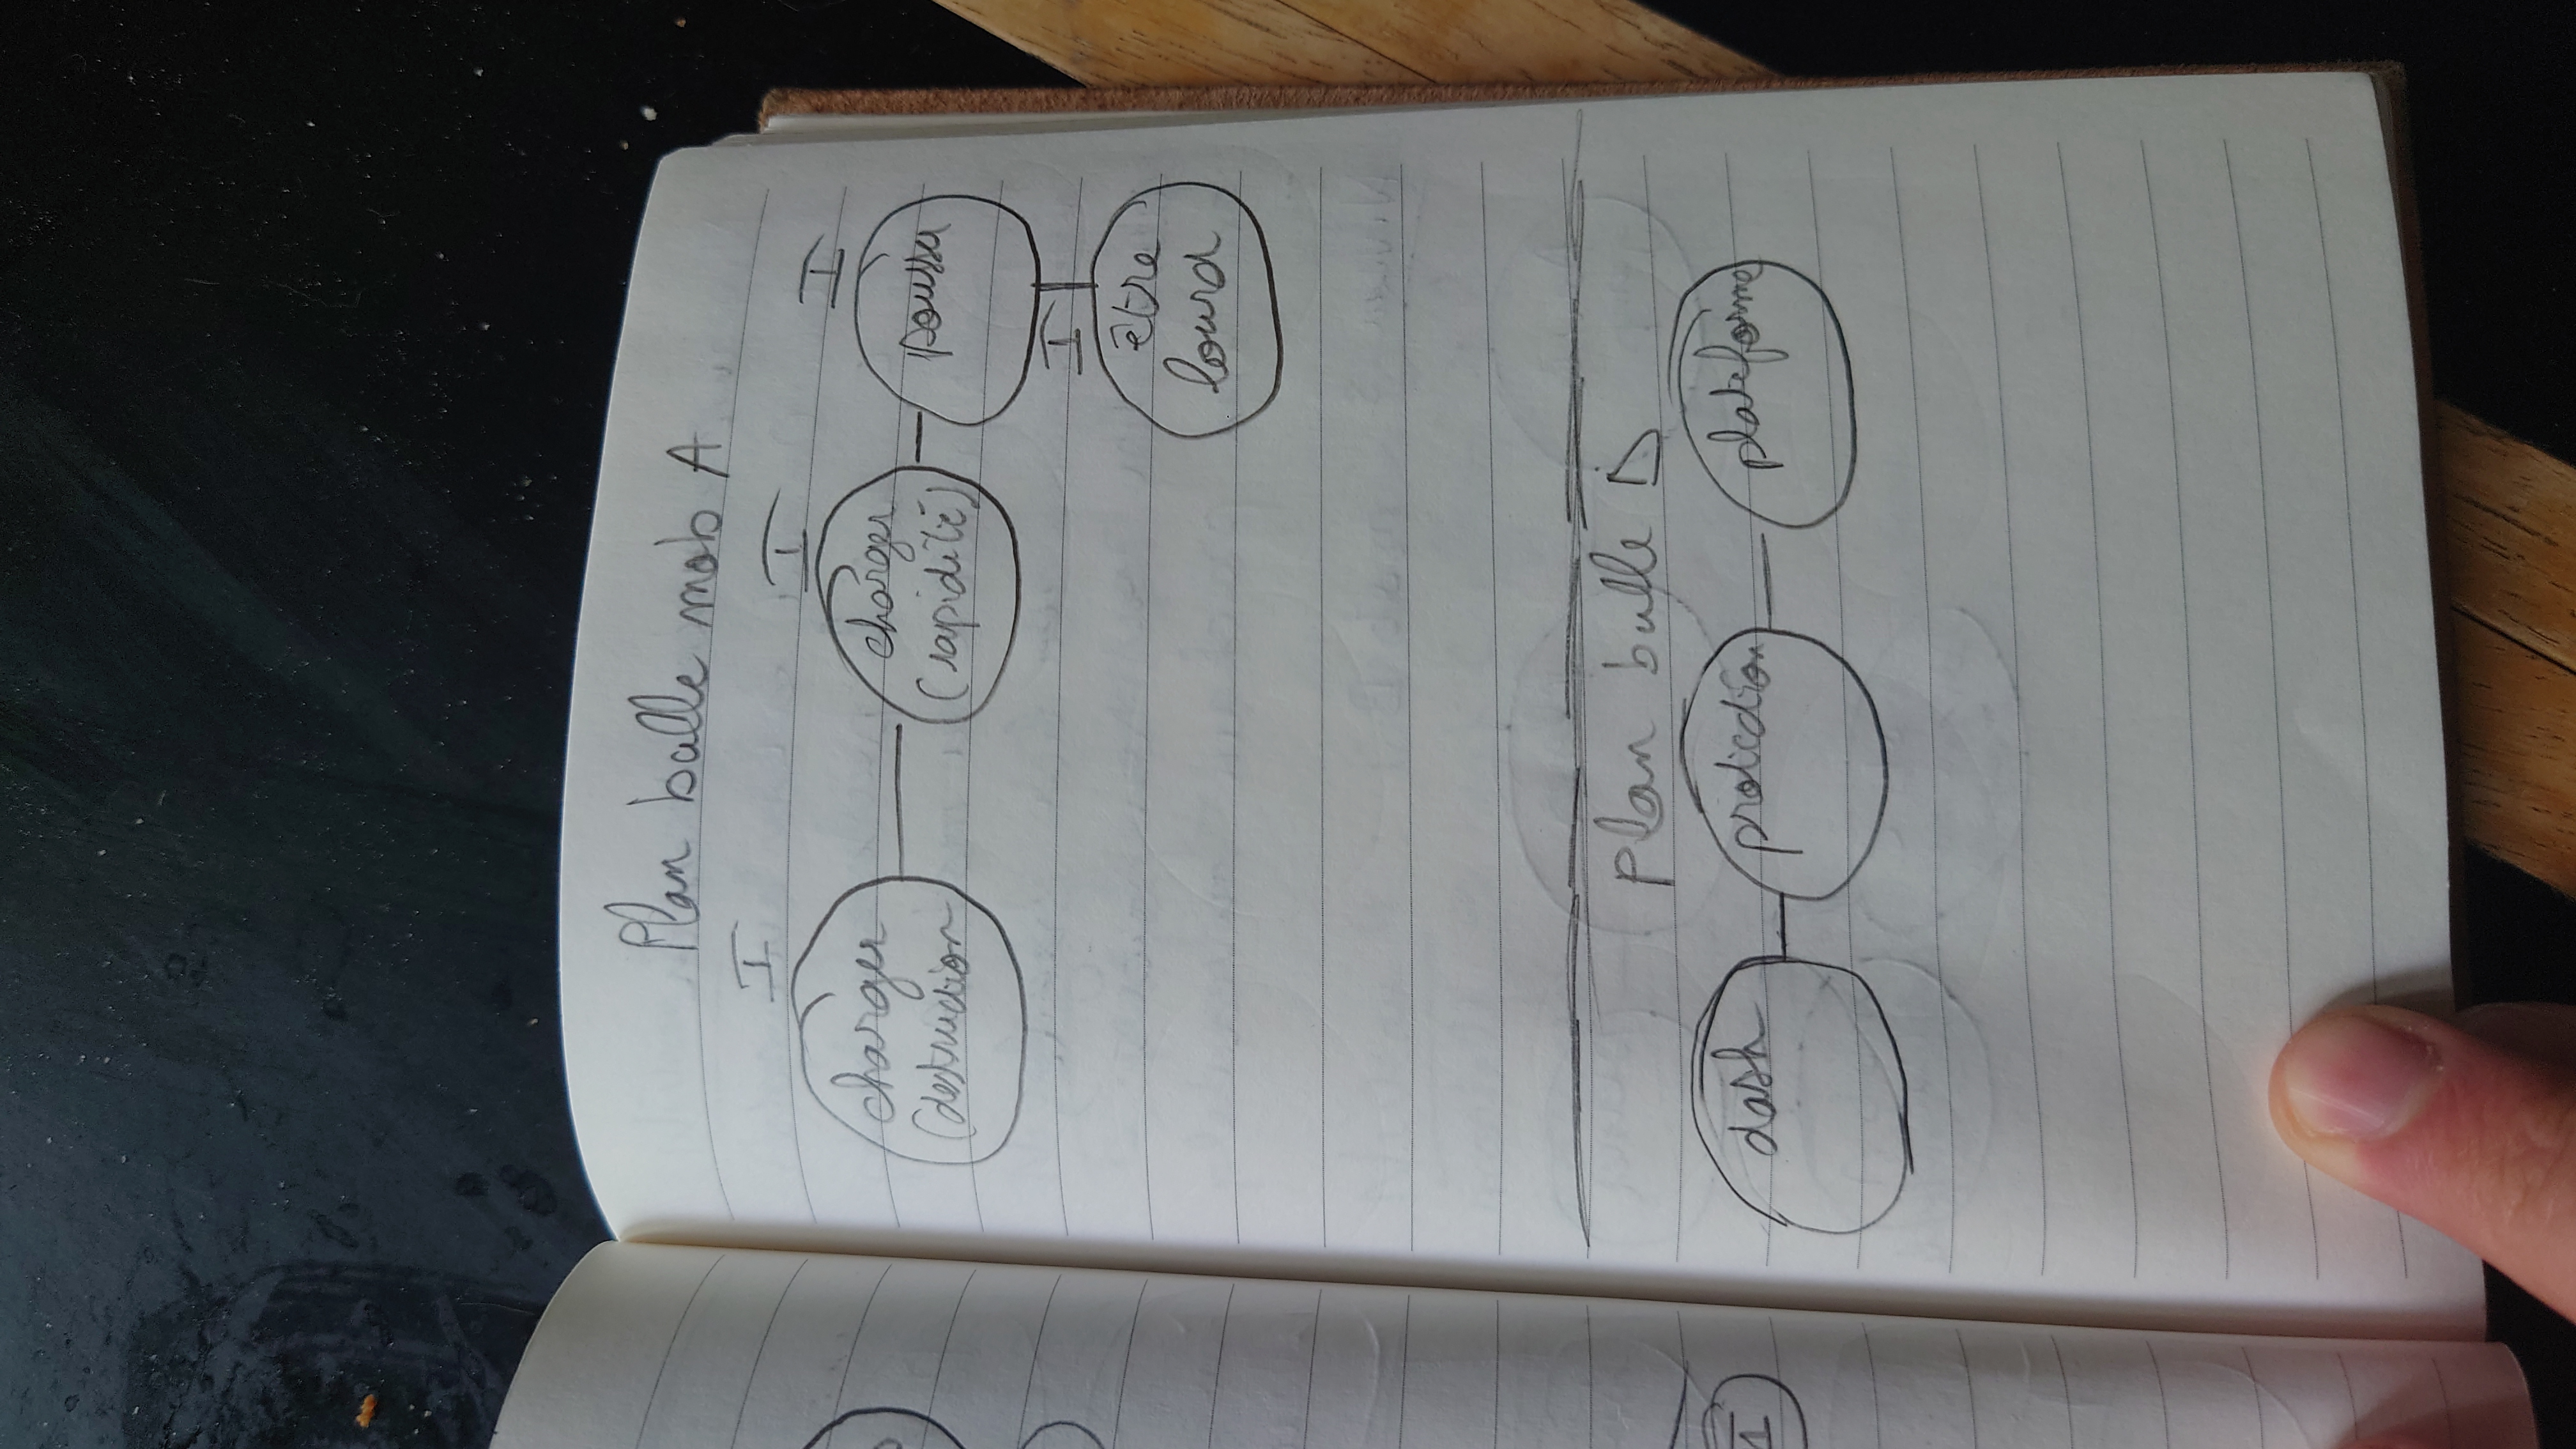 Plan bulle mob A
I
I
I
charger
(destruction
charger
(rapidité)
pousser
I
être
lourd
plan bulle D
dash
protection
plateforme
I